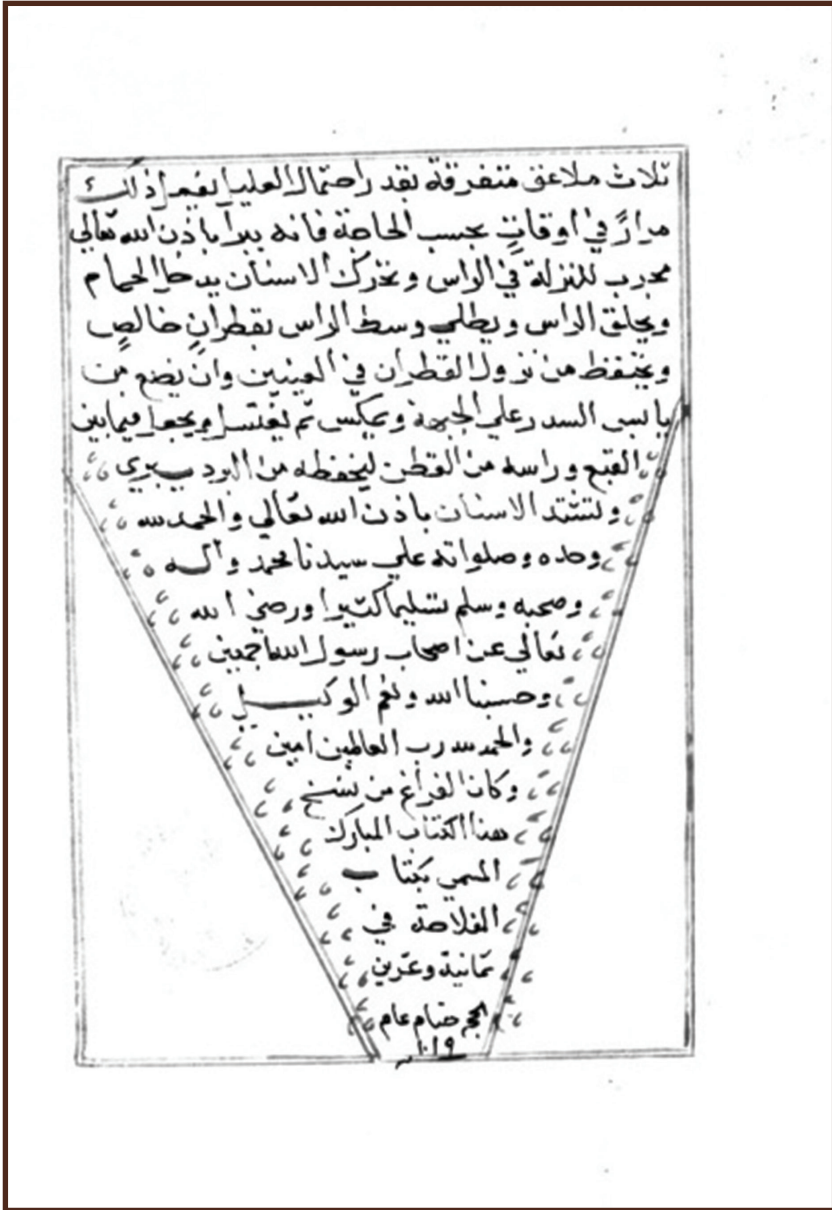 ثلاث ملاعق متفرقة بقدر احتمال العليل يفعل ذلك
مرارً في اوقاتٍ بحسب الحاجة فانه يبرا باذن الله تعالي
مجرب للنزلة في الراس وتحرك الاسنان يدخل الحمام
ويحلق الراس ويطلي وسط الراس بقطرانٍ خالصٍ
ويتحفظ من نزول القطران في العينين وان يضع من
يابس السدر علي الجبهة ويمكس ثم يغتسل ويجعل فيما بين
القبع وراسه من القطن ليحفظه من البرد يبري
وتشتد الاسنان باذن الله تعالي والحمد لله
وحده وصلواته علي سيدنا محمد وآله
وصحبه وسلم تسليما كثيرا ورضي الله
تعالي عن اصحاب رسول الله اجمعين
وحسبنا الله ونعم الوكيل
والحمد لله رب العالمين امين
وكان الفراغ من نسخ
هذا الكتاب المبارك
المسمي بكتاب
الفلاحة في
ثمانية وعشرين
ختام عام